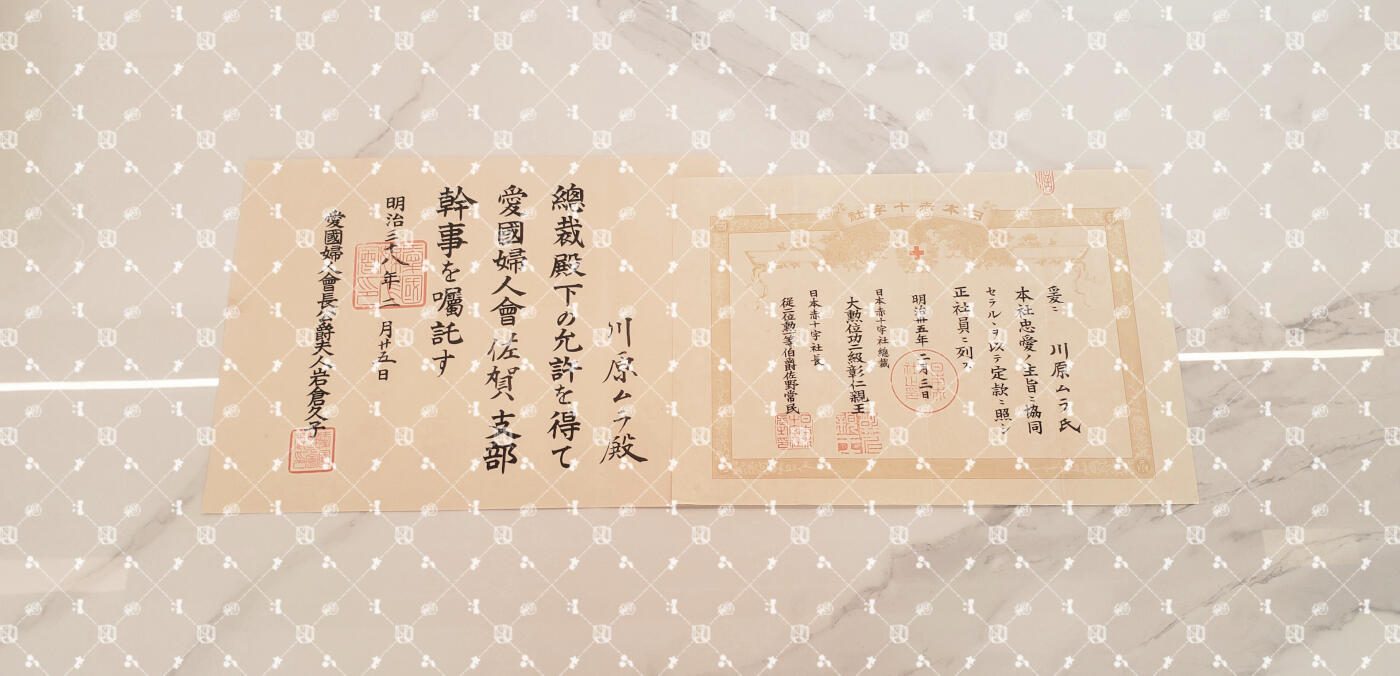 日本赤十字社
爰ニ 川原ムラ氏
本社忠愛ノ主旨ニ協同
セラルヽヲ以テ定款ニ照シ
正社員ニ列ス
明治卅五年二月三日
日本赤十字社總裁
大勲位功二級彰仁親王
日本赤十字社長
従二位勲一等伯爵佐野常民
川原ムラ殿
總裁殿下の允許を得て
愛國婦人會佐賀支部
幹事を囑託す
明治三十八年二月廿五日
愛國婦人會長公爵夫人岩倉久子